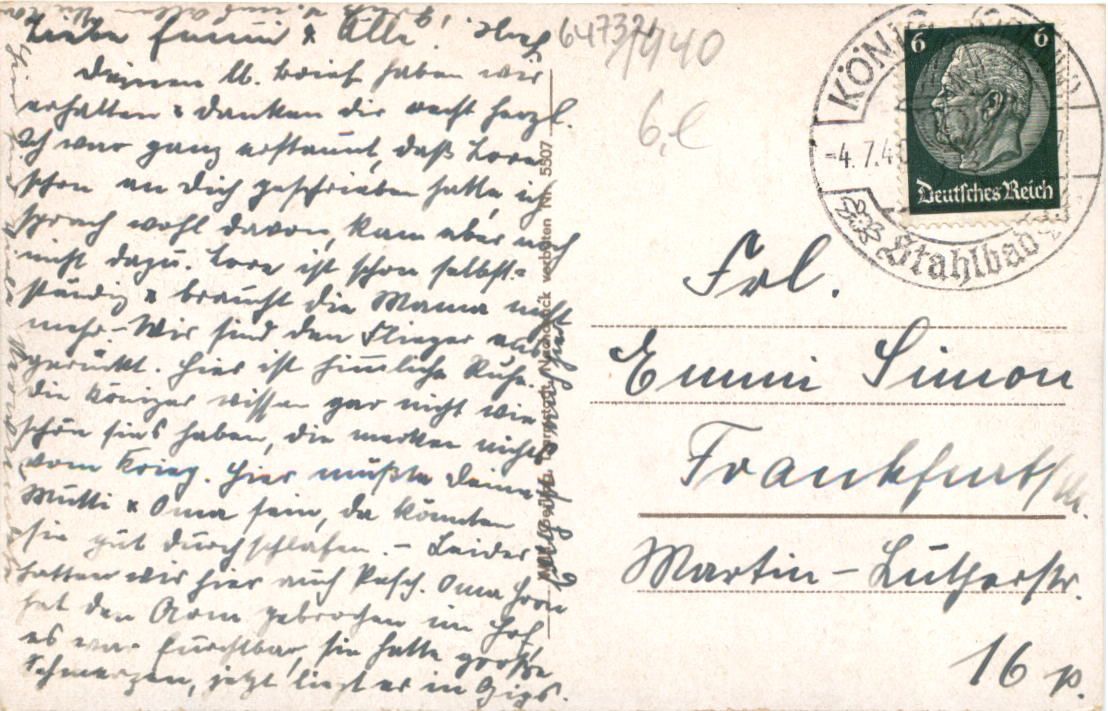 Liebe Emmi & Alle!
Deinen lb. Brief haben wir
erhalten & danken dir recht herzl.
Ich war ganz erstaunt, daß Lore
schon an dich geschrieben hatte, ich
sprach wohl davon, kam aber noch
nicht dazu. Lore ist schon selbst-
ständig & braucht die Mama nicht
mehr. – Wir sind den Flieger
gerückt. Hier ist himmliche Ruhe.
die Königer wissen gar nicht wie
schön sies haben, die merken nichts
vom Krieg. Hier müßte deine
Mutti & Oma sein, da könnten
sie gut durchschlafen. – Leider
hatten wir hier auch Pech. Oma
hat den Arm gebrochen im Hof,
es war furchtbar, sie hatte große
Schmerzen, jetzt liegt er in Gips.
Nachdruck verboten Nr. 5507
647321
1940
6,-
KÖNIG
-4.7.4
Stahlbad
6 6
Deutsches Reich
Frl.
Emmi Simon
Frankfurt/M.
Martin-Lutherstr.
16 p.